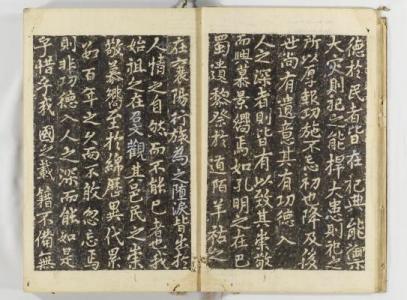 德於民者皆在祀典能禦
大災則祀之能捍大患則祀之
所以厚報功施不忘初也降及後
世尚有遺意其有功德入
人之深者則皆有以致其崇敬
而興慕嚮焉如孔明之在巴
蜀遺黎祭於道陌羊祜之
在襄陽行旅為之墮淚皆出於
人情之自然而不能已者也我
始祖之在受觀其邑民之崇
敬慕嚮至於綿歷異代累
數百年之久而不敢忽忘焉
則非功德入人之深而能如是
乎惜乎我國之載籍不備無